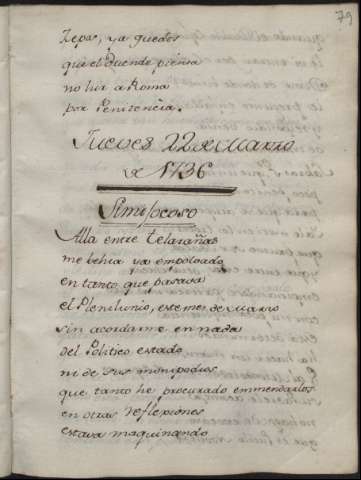 79
Jepas, ya quedos
que el Duende piensa
no hir a Roma
por Penitencia.
Jueves 22 de Marzo
de 1736
Simisocoso
Alla entre telarañas
me behia ya empolbado,
en tanto que pasava
el Plenilunio, este mes de Marzo
sin acordarme en nada
del Politico estado
ni de sus monipodios
que tanto he procurado emmendarlos
en otras reflexiones
estava maquinando